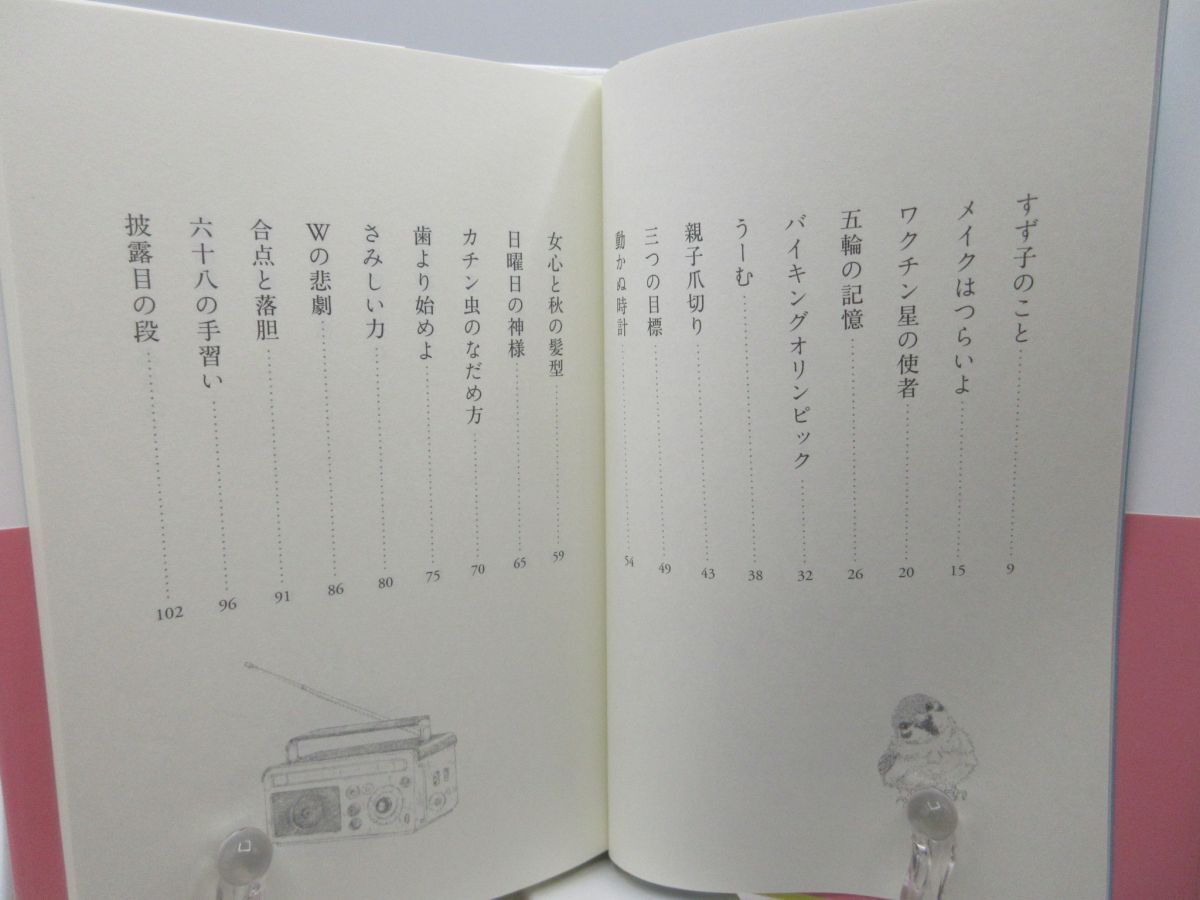 すず子のこと……9
メイクはつらいよ……15
ワクチン星の使者……20
五輪の記憶……26
バイキングオリンピック……32
うーむ……38
親子爪切り……43
三つの目標……49
動かぬ時計……54
女心と秋の髪型……59
日曜日の神様……65
カチン虫のなだめ方……70
歯より始めよ……75
さみしい力……80
Wの悲劇……86
合点と落胆……91
六十八の手習い……96
披露目の段……102